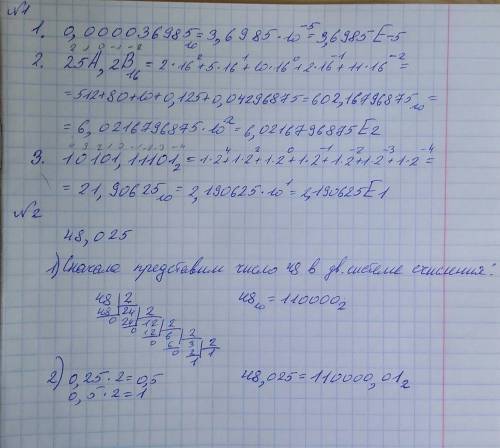 №1
1. 0,000036985₁₀ = 3,6985·10⁻⁵ = 3,6985E-5
2 1 0 -1 -2
2. 25A,2B₁₆ = 2·16² + 5·16¹ + 10·16⁰ + 2·16⁻¹ + 11·16⁻² =
= 512+80+10+0,125+0,04296875 = 602,16796875₁₀ =
= 6,0216796875·10² = 6,0216796875E2
4 3 2 1 0 -1 -2 -3 -4
3. 10101,11101₂ = 1·2⁴ + 1·2² + 1·2⁰ + 1·2⁻¹ + 1·2⁻² + 1·2⁻³ + 1·2⁻⁴ =
= 21,90625₁₀ = 2,190625·10¹ = 2,190625E1
№2
48,025
1) Сначала представим число 48 в дв. системе счисления:
48 2 48₁₀ = 110000₂
48 24 2
0 24 12 2
0 12 6 2
0 6 3 2
0 2 1
1
2) 0,25·2 = 0,5 48,025 = 110000,01₂
0,5·2 = 1